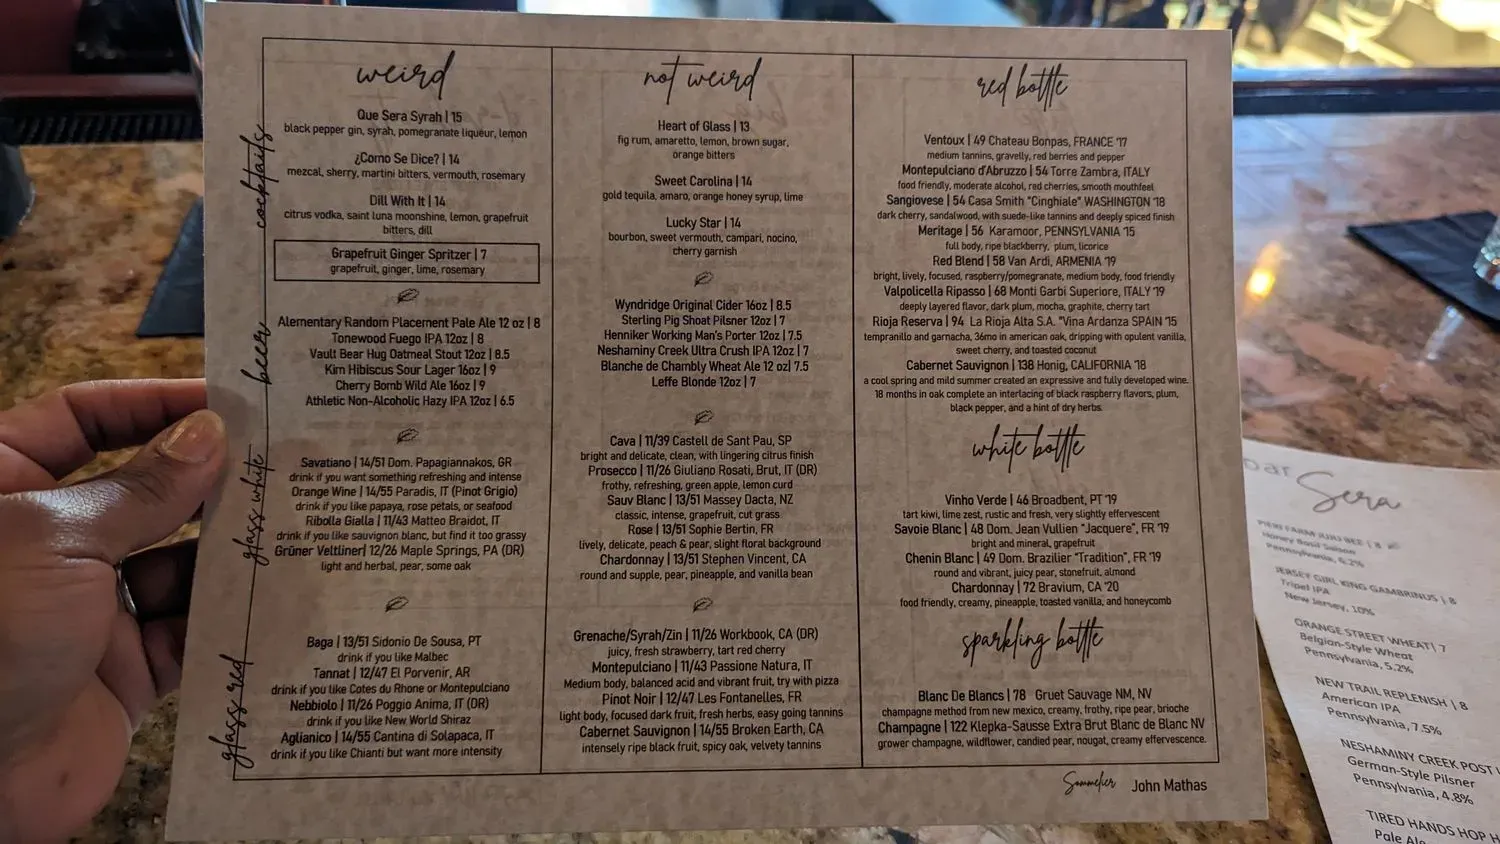 weird
Que Sera Syrah | 15
black pepper gin, syrah, pomegranate liqueur, lemon
¿Como Se Dice? | 14
mezcal, sherry, martini bitters, vermouth, rosemary
Dill With It | 14
citrus vodka, saint luna moonshine, lemon, grapefruit
bitters, dill
Grapefruit Ginger Spritzer | 7
grapefruit, ginger, lime, rosemary
cocktails
Alementary Random Placement Pale Ale 12 oz | 8
Tonewood Fuego IPA 12oz | 8
Vault Bear Hug Oatmeal Stout 12oz | 8.5
Kim Hibiscus Sour Lager 16oz | 9
Cherry Bomb Wild Ale 16oz | 9
Athletic Non-Alcoholic Hazy IPA 12oz | 6.5
beers
Savatiano | 14/51 Dom. Papagiannakos, GR
drink if you want something refreshing and intense
Orange Wine | 14/55 Paradis, IT (Pinot Grigio)
drink if you like papaya, rose petals, or seafood
Ribolla Gialla | 11/43 Matteo Braidot, IT
drink if you like sauvignon blanc, but find it too grassy
Grüner Veltliner| 12/26 Maple Springs, PA (DR)
light and herbal, pear, some oak
glass white
Baga | 13/51 Sidonio De Sousa, PT
drink if you like Malbec
Tannat | 12/47 El Porvenir, AR
drink if you like Cotes du Rhone or Montepulciano
Nebbiolo | 11/26 Poggio Anima, IT (DR)
drink if you like New World Shiraz
Aglianico | 14/55 Cantina di Solapaca, IT
drink if you like Chianti but want more intensity
glass red
not weird
Heart of Glass | 13
fig rum, amaretto, lemon, brown sugar,
orange bitters
Sweet Carolina | 14
gold tequila, amaro, orange honey syrup, lime
Lucky Star | 14
bourbon, sweet vermouth, campari, nocino,
cherry garnish
Wyndridge Original Cider 16oz | 8.5
Sterling Pig Shoat Pilsner 12oz | 7
Henniker Working Man's Porter 12oz | 7.5
Neshaminy Creek Ultra Crush IPA 12oz | 7
Blanche de Chambly Wheat Ale 12 oz| 7.5
Leffe Blonde 12oz | 7
Cava | 11/39 Castell de Sant Pau, SP
bright and delicate, clean, with lingering citrus finish
Prosecco | 11/26 Giuliano Rosati, Brut, IT (DR)
frothy, refreshing, green apple, lemon curd
Sauv Blanc | 13/51 Massey Dacta, NZ
classic, intense, grapefruit, cut grass
Rose | 13/51 Sophie Bertin, FR
lively, delicate, peach & pear, slight floral background
Chardonnay | 13/51 Stephen Vincent, CA
round and supple, pear, pineapple, and vanilla bean
Grenache/Syrah/Zin | 11/26 Workbook, CA (DR)
juicy, fresh strawberry, tart red cherry
Montepulciano | 11/43 Passione Natura, IT
Medium body, balanced acid and vibrant fruit, try with pizza
Pinot Noir | 12/47 Les Fontanelles, FR
light body, focused dark fruit, fresh herbs, easy going tannins
Cabernet Sauvignon | 14/55 Broken Earth, CA
intensely ripe black fruit, spicy oak, velvety tannins
red bottle
Ventoux | 49 Chateau Bonpas, FRANCE '17
medium tannins, gravelly, red berries and pepper
Montepulciano d'Abruzzo | 54 Torre Zambra, ITALY
food friendly, moderate alcohol, red cherries, smooth mouthfeel
Sangiovese | 54 Casa Smith "Cinghiale" WASHINGTON '18
dark cherry, sandalwood, with suede-like tannins and deeply spiced finish
Meritage | 56 Karamoor, PENNSYLVANIA '15
full body, ripe blackberry, plum, licorice
Red Blend | 58 Van Ardi, ARMENIA '19
bright, lively, focused, raspberry/pomegranate, medium body, food friendly
Valpolicella Ripasso | 68 Monti Garbi Superiore, ITALY '19
deeply layered flavor, dark plum, mocha, graphite, cherry tart
Rioja Reserva | 94 La Rioja Alta S.A. "Vina Ardanza SPAIN '15
tempranillo and garnacha, 36mo in american oak, dripping with opulent vanilla,
sweet cherry, and toasted coconut
Cabernet Sauvignon | 138 Honig, CALIFORNIA '18
a cool spring and mild summer created an expressive and fully developed wine.
18 months in oak complete an interlacing of black raspberry flavors, plum,
black pepper, and a hint of dry herbs.
white bottle
Vinho Verde | 46 Broadbent, PT '19
tart kiwi, lime zest, rustic and fresh, very slightly effervescent
Savoie Blanc | 48 Dom. Jean Vullien "Jacquere", FR '19
bright and mineral, grapefruit
Chenin Blanc | 49 Dom. Brazilier "Tradition", FR '19
round and vibrant, juicy pear, stonefruit, almond
Chardonnay | 72 Bravium, CA '20
food friendly, creamy, pineapple, toasted vanilla, and honeycomb
sparkling bottle
Blanc De Blancs | 78 Gruet Sauvage NM, NV
champagne method from new mexico, creamy, frothy, ripe pear, brioche
Champagne | 122 Klepka-Sausse Extra Brut Blanc de Blanc NV
grower champagne, wildflower, candied pear, nougat, creamy effervescence.
Sommelier John Mathas
bar
Sera
PIERI FARM JUJU BEE | 8
Honey Basil Saison
Pennsylvania, 6.2%
JERSEY GIRL KING GAMBRINUS | 8
Tripel IPA
New Jersey, 10%
ORANGE STREET WHEAT| 7
Belgian-Style Wheat
Pennsylvania, 5.2%
NEW TRAIL REPLENISH | 8
American IPA
Pennsylvania, 7.5%
NESHAMINY CREEK POST
German-Style Pilsner
Pennsylvania, 4.8%
TIRED HANDS HOP
Pale Ale